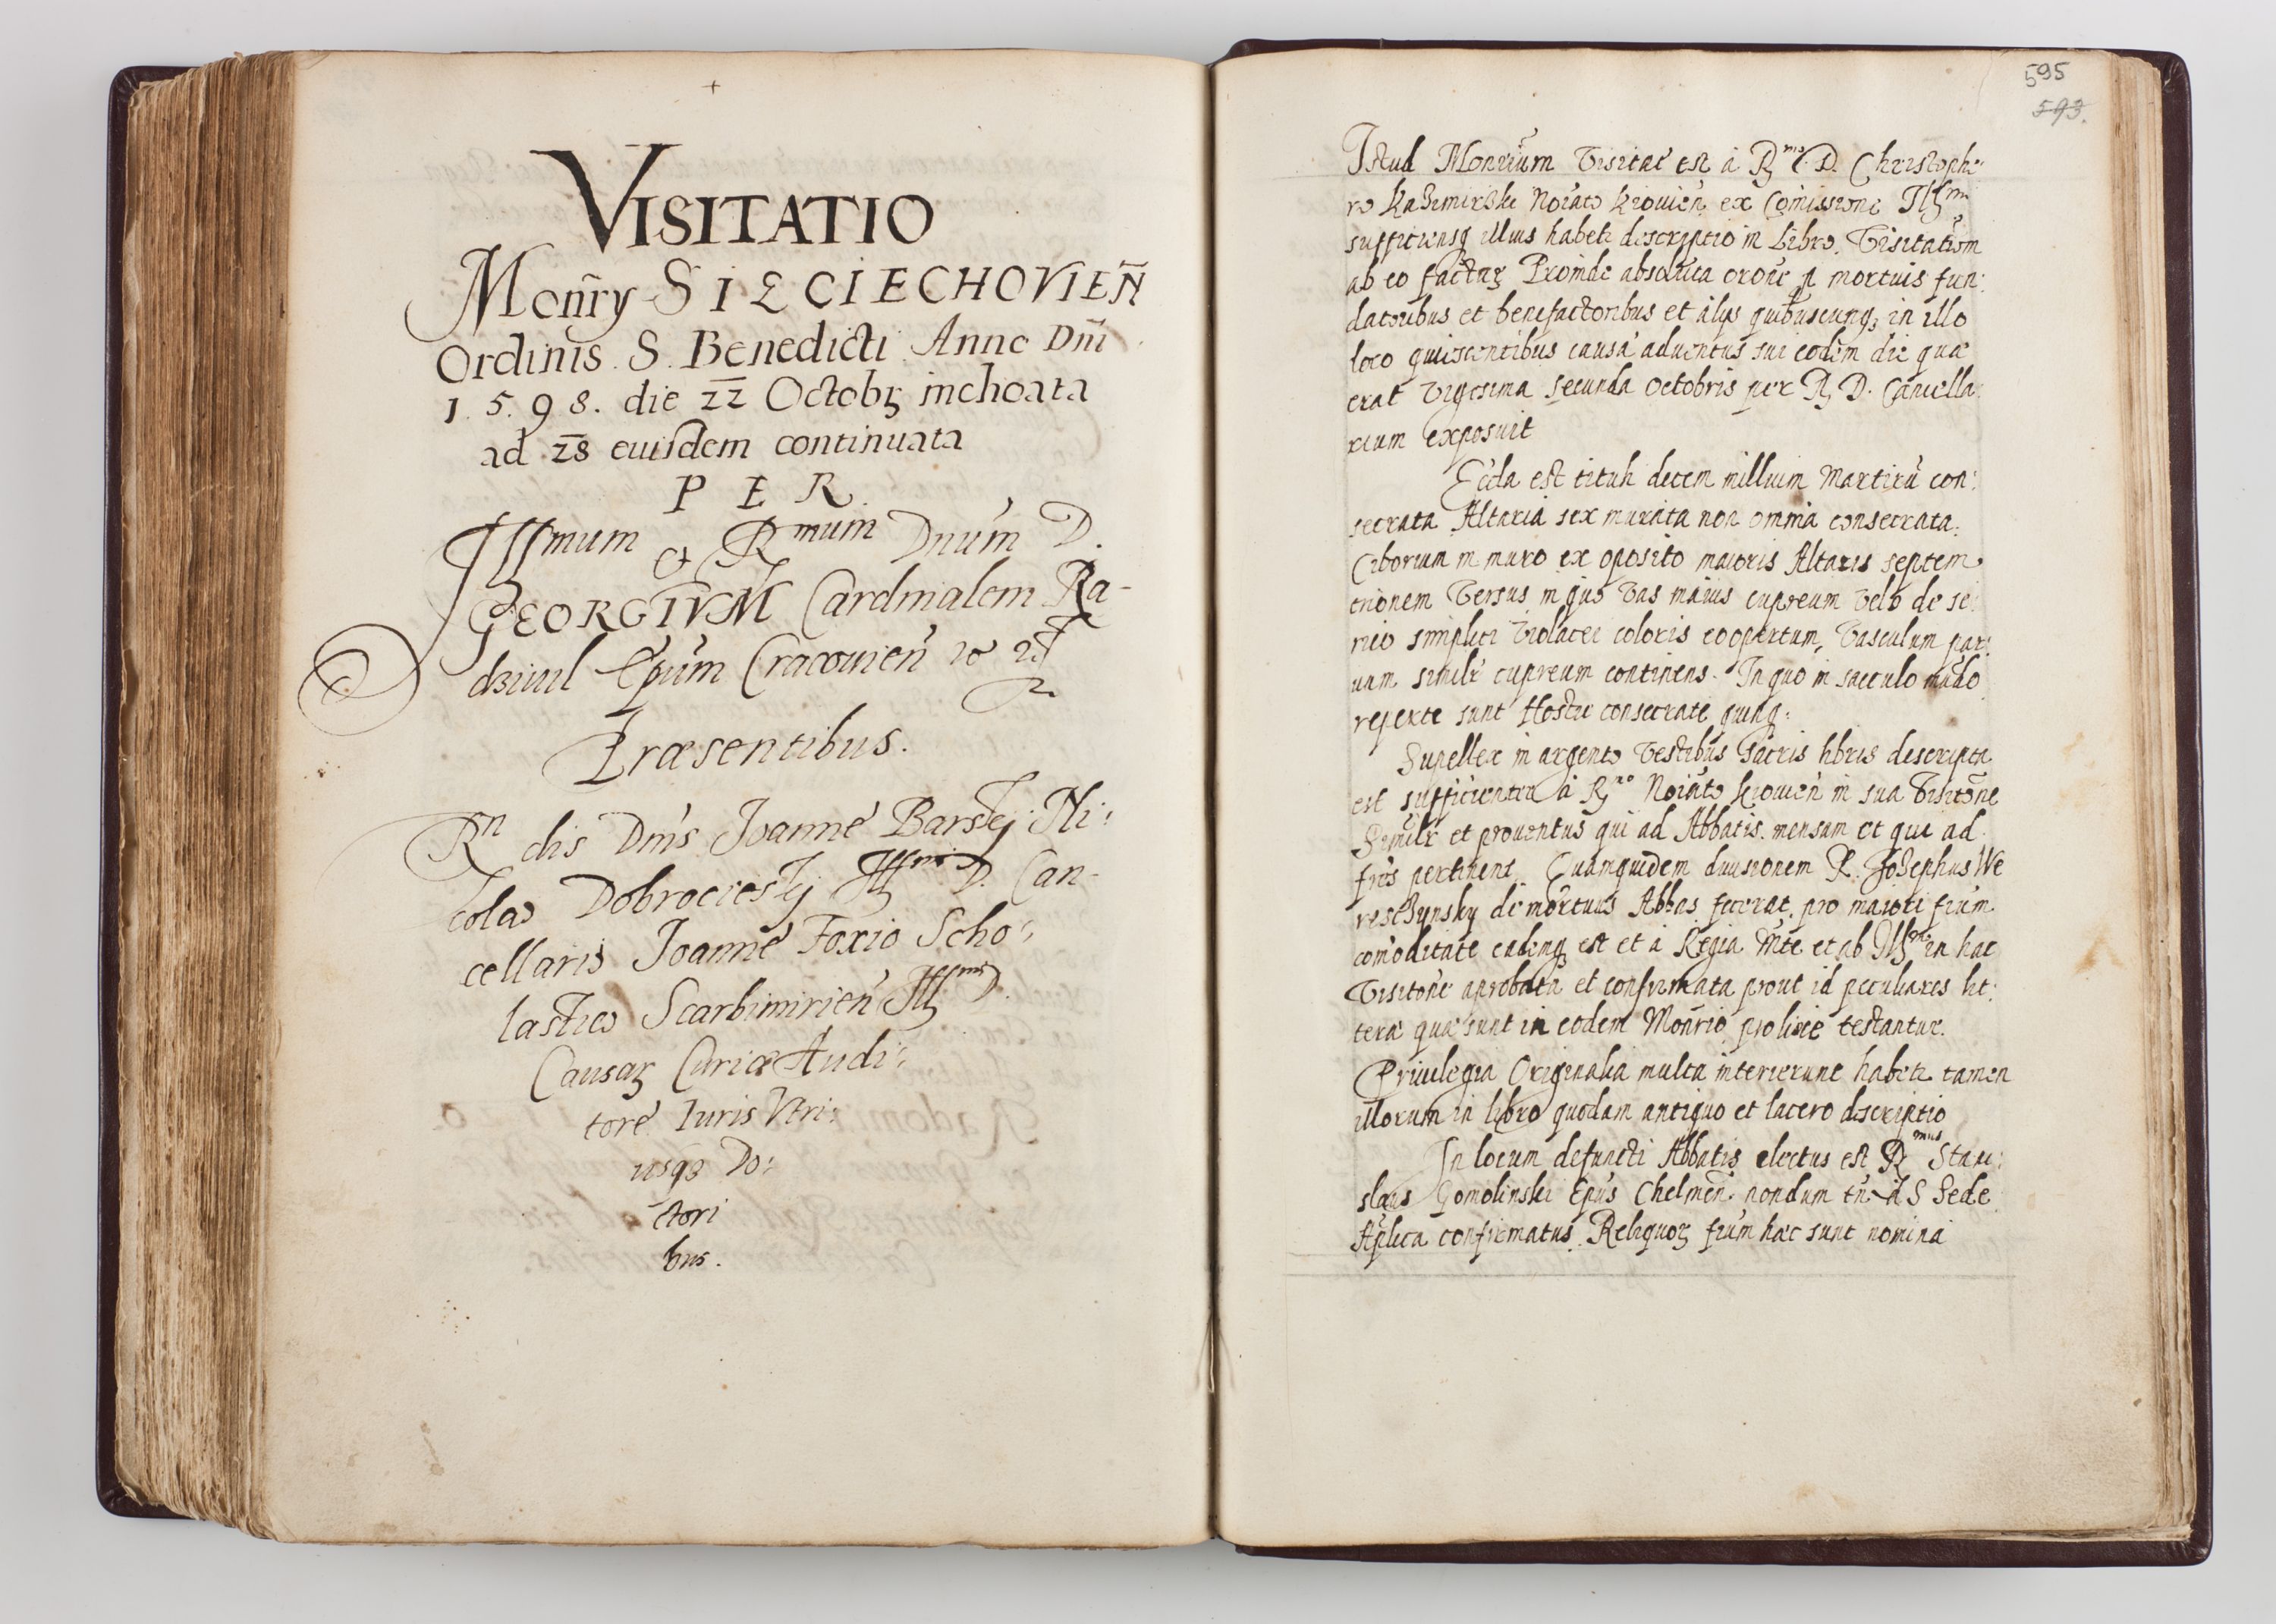 VISITATIO
Monrÿ SIECIECHOVIEÑ
Ordinis S. Benedicti Anno Dnī
1.5.98. die 22 Octobꝫ inchoata
ad 28 eiusdem continuata
PER
Illꝫmum & Rmum Dnum D.
GEORGIVM Cardinalem Ra-
dziuil Epūm Cracouień
Præsentibus.
Rn dis Dnis Joanne Barskj Ni:
colao Dobrocieskj Illmi D. Can-
cellaris Joanne Foxio Scho:
lastico Scarbimirień Illꝫmi D.
Causaꝝ Curiæ Audi:
tore Iuris Vtri:
usqꝫ Do:
ctori
bus.
595
593.
Istud Monriūm Visitat est à Rmo D. Christopho
ro Kazimirski Noiāto Kiouień ex Comissione Illmi
sufficiensqꝫ illius habetr descriptio in Libro Visitatiōm
ab eo factaꝝ Proinde absoluta orōne p mortuis fun:
datoribus et benefactoribus et alijs quibuscunqꝫ in illo
loco quiescentibus causā aduentus sui eodem die quæ
erat vigesima secunda Octobris per R. D. Cancella:
rium exposuit
Eccla est tituli decem millium Martirū con:
secrata Altaria sex murata non omnia consecrata.
Ciborium in muro ex oposito maioris Altaris septem
trionem versus in quo vas maius cupreum velo de se
rico simplici violacei coloris coopertum, vasculum par:
uum similr cupreum continens. In quo in sacculo mūdo
reperte sunt Hostie consecrate quinqꝫ:
Supellex in argento vestibus sacris libris descripta
est sufficienter à Rmo Noiāto Kiouień in sua Visitōne
Similr et prouentus qui ad Abbatis mensam et qui ad
frēs pertinent. Quamquidem diuisionem R. Josephus We
reszzynsky demortuus Abbas fecerat pro maiori frūm
comoditate eademqꝫ est et à Regia Mte et ab Illmo in hac
Visitōne aprobata et confirmata prout id peculiares lit:
teræ quæ sunt in eodem Monrio prolixe testantur.
Priuilegia Originalia multa interierunt habetr tamen
illorum in libro quodam antiquo et lacero descriptio
In locum defuncti Abbatis electus est Rmus Stani:
slaus Gomolinski Epūs Chelmeń nondum tn à S Sede
Aplica confirmatus. Reliquoꝝ frūm hæc sunt nomina